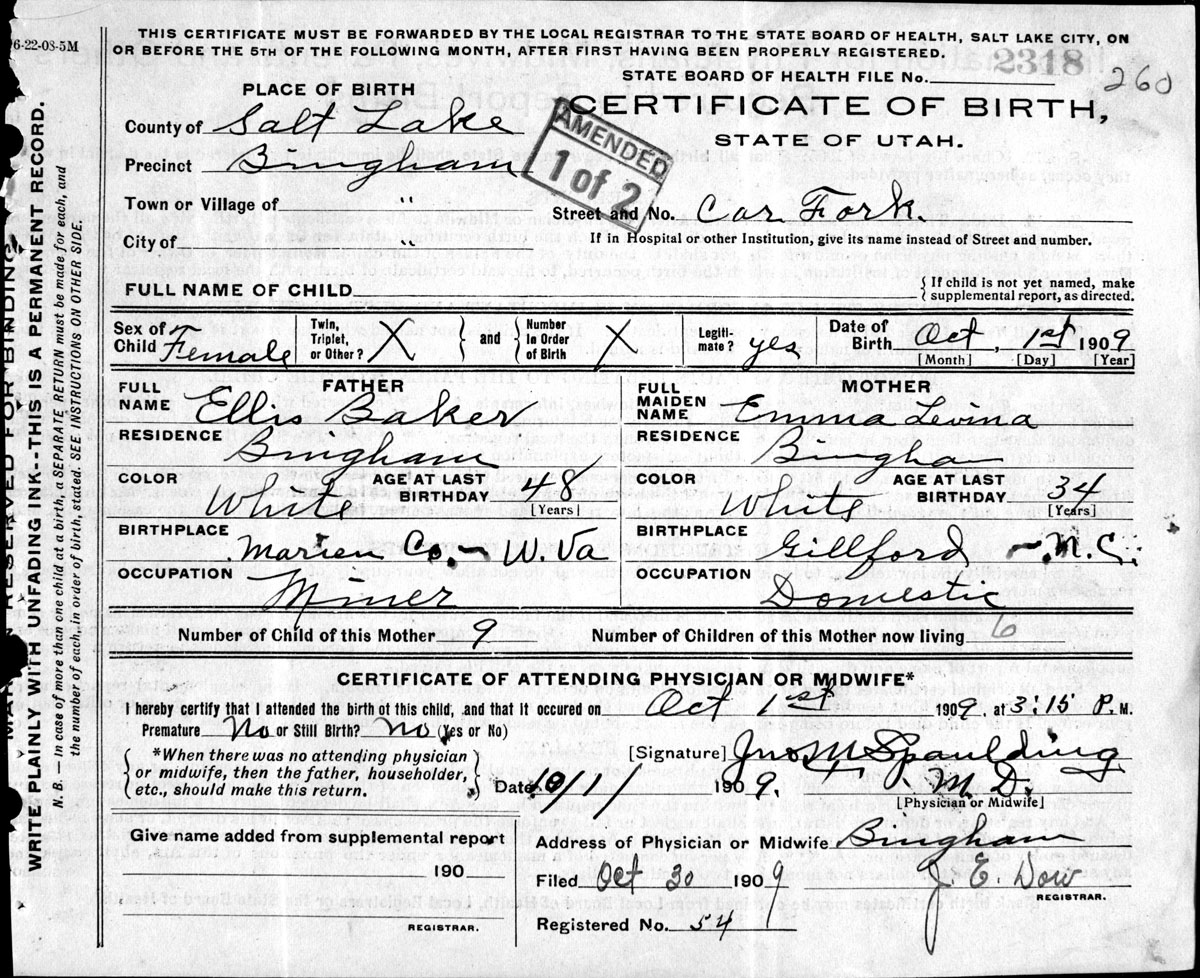 6-22-08-5M
THIS CERTIFICATE MUST BE FORWARDED BY THE LOCAL REGISTRAR TO THE STATE BOARD OF HEALTH, SALT LAKE CITY, ON
OR BEFORE THE 5TH OF THE FOLLOWING MONTH, AFTER FIRST HAVING BEEN PROPERLY REGISTERED.
2318
STATE BOARD OF HEALTH FILE No.
260
PLACE OF BIRTH
CERTIFICATE OF BIRTH,
STATE OF UTAH.
County of Salt Lake
AMENDED
1 of 2
Precinct Bingham
Town or Village of "
Street and No. Car Fork.
City of "
If in Hospital or other Institution, give its name instead of Street and number.
FULL NAME OF CHILD
{ If child is not yet named, make
supplemental report, as directed.
Sex of Child Female
Twin, Triplet, or Other? X } and { Number In Order of Birth X
Legiti-mate? yes
Date of Birth Oct. 1st 1909
[Month] [Day] [Year]
FATHER
FULL NAME Ellis Baker
MOTHER
FULL MAIDEN NAME Emma Levina
RESIDENCE Bingham
RESIDENCE Bingham
COLOR White
AGE AT LAST BIRTHDAY 48
[Years]
COLOR White
AGE AT LAST BIRTHDAY 34
[Years]
BIRTHPLACE Marion Co. - W. Va
BIRTHPLACE Gillford - N.C.
OCCUPATION Miner
OCCUPATION Domestic
Number of Child of this Mother 9
Number of Children of this Mother now living 6
CERTIFICATE OF ATTENDING PHYSICIAN OR MIDWIFE*
I hereby certify that I attended the birth of this child, and that it occured on Oct 1st 1909. at 3:15 P.M.
Premature No or Still Birth? No (Yes or No)
{ *When there was no attending physician
or midwife, then the father, householder,
etc., should make this return. }
[Signature] Jno M Spaulding
Date 10/1/ 1909. M. D.
[Physician or Midwife]
Give name added from supplemental report
190
REGISTRAR.
Address of Physician or Midwife Bingham
Filed Oct 30 1909 J. E. Dow
REGISTRAR.
Registered No. 54
MARGIN RESERVED FOR BINDING
WRITE PLAINLY WITH UNFADING INK--THIS IS A PERMANENT RECORD.
N. B. — In case of more than one child at a birth, a SEPARATE RETURN must be made for each, and
the number of each, in order of birth, stated. SEE INSTRUCTIONS ON OTHER SIDE.